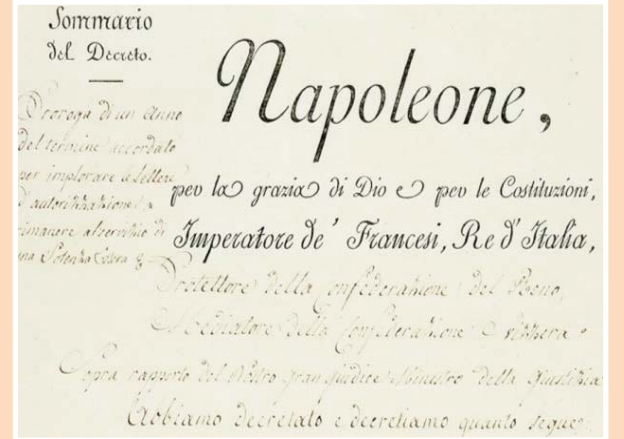 Sommario
del Decreto.
Proroga di un Anno
del termine accordato
per implorare le Lettere
d'autorizzazione a
rimanere al servizio di
una Potenza Estera
Napoleone,
per la grazia di Dio e per le Costituzioni,
Imperatore de' Francesi, Re d'Italia,
Protettore della Confederazione del Reno,
Mediatore della Confederazione Svizzera
Sopra rapporto del Nostro gran giudice Ministro della Giustizia
Abbiamo decretato e decretiamo quanto segue: